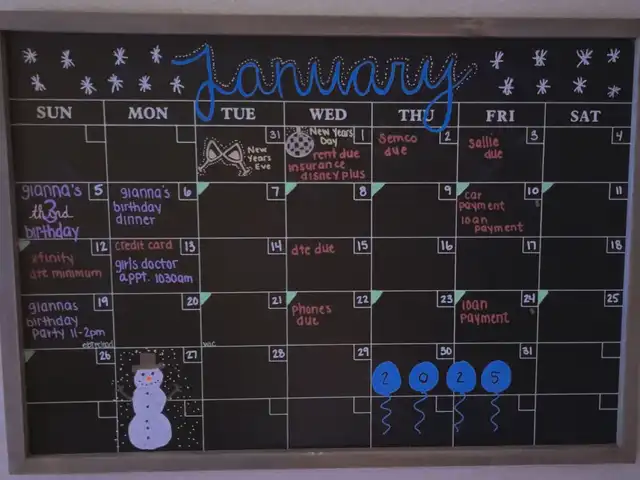 January
SUN MON TUE WED THU FRI SAT
31
New
Years
Eve
1
New Years
Day
rent due
insurance
disney plus
2
Semco
due
3
sallie
due
4
5
gianna's
third
3
birthday
6
gianna's
birthday
dinner
7
8
9
10
car
payment
loan
payment
11
12
xfinity
dte minimum
13
credit card
girls doctor
appt. 1030am
14
15
dte due
16
17
18
19
giannas
birthday
party 11-2pm
20
21
22
phones
due
23
24
loan
payment
25
26
27
28
29
30
31
2 0 2 5